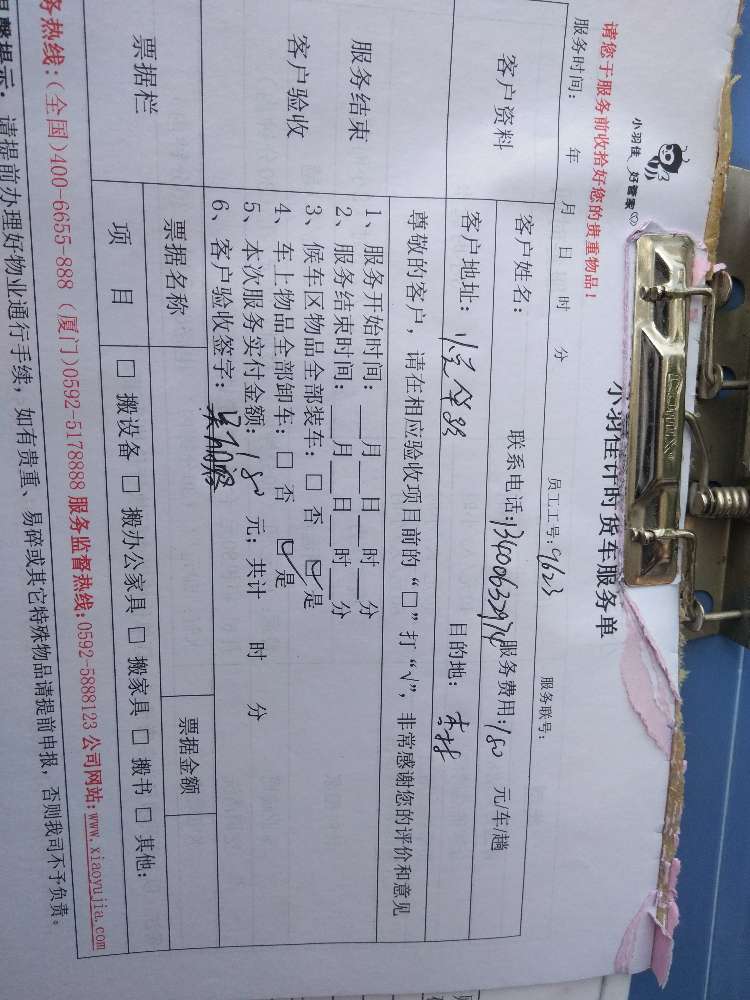 小羽佳 好管家
小羽佳计时货车服务单
请您于服务前收拾好您的贵重物品!
服务时间: 年 月 日 时 分 员工工号:9623 服务联号:
客户资料
客户姓名: 联系电话:13400632974 服务费用:180 元/车/趟
客户地址: 目的地:
服务结束
客户验收
尊敬的客户,请在相应验收项目前的“□”打“√”,非常感谢您的评价和意见
1、服务开始时间:__月__日__时__分
2、服务结束时间:__月__日__时__分
3、候车区物品全部装车:□ 否 ☑是
4、车上物品全部卸车:□ 否 ☑是
5、本次服务实付金额:180 元;共计 时 分
6、客户验收签字:
票据栏
票据名称 票据金额
项 目 □ 搬设备 □ 搬办公家具 □ 搬家具 □ 搬书 □ 其他:
务热线:(全国)400-6655-888 (厦门)0592-5178888 服务监督热线:0592-5888123 公司网站:www.xiaoyujia.com
温馨提示:请提前办理好物业通行手续,如有贵重、易碎或其它特殊物品请提前申报,否则我司不予负责。